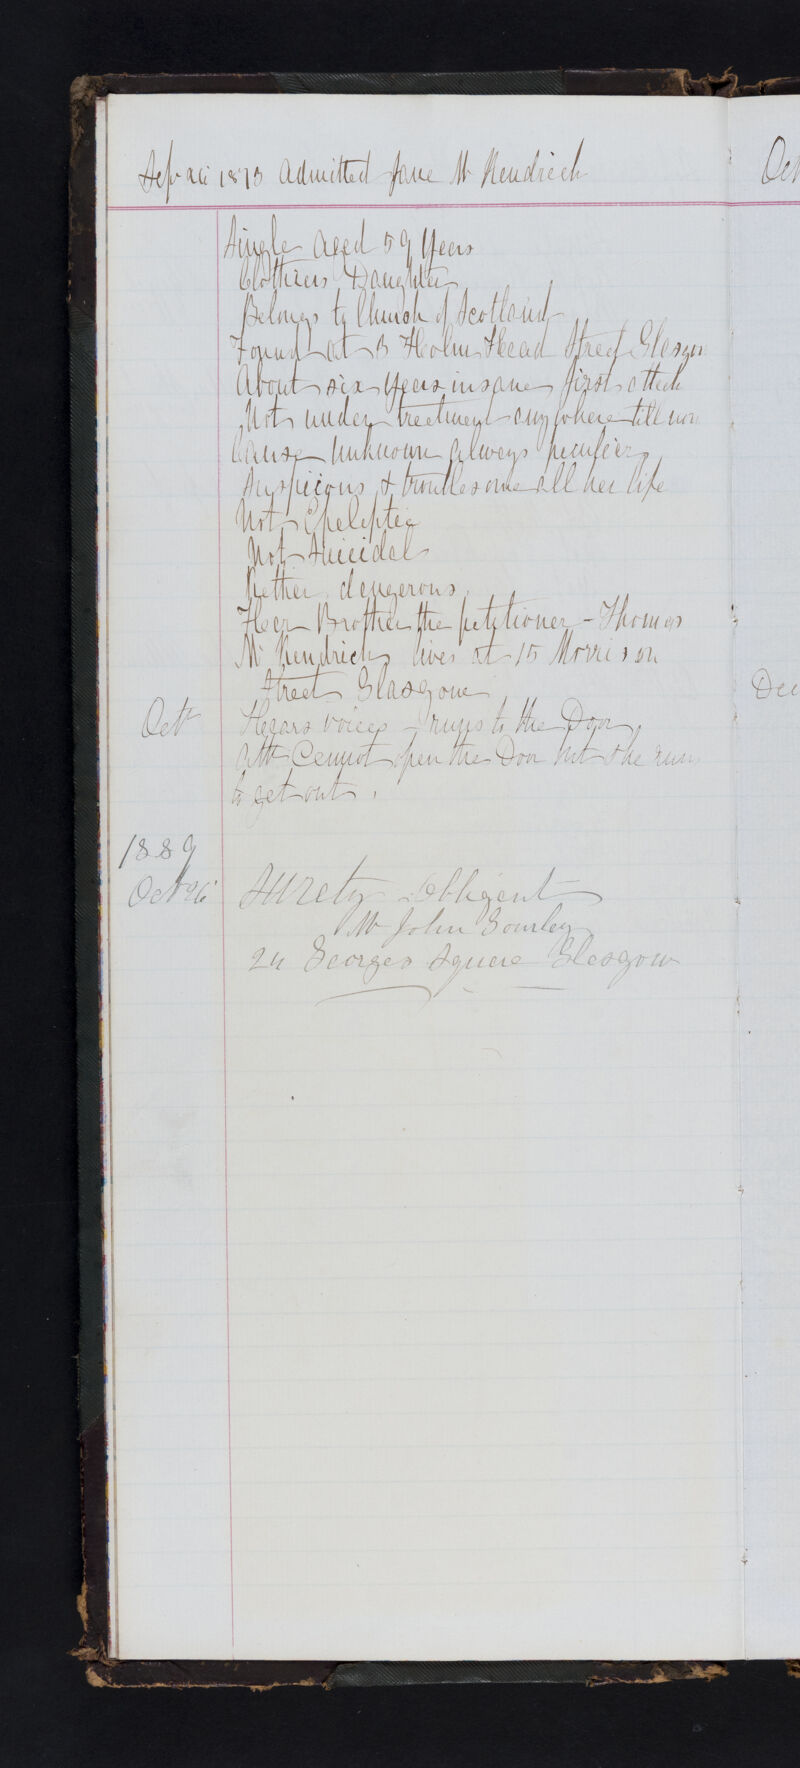 1873 Admitted Jane Mc Kendrick
Single aged 59 Years
Clothiers Daughter
Belongs to Church of Scotland
Found at 3 Holm Head Street Glasgow
About six years insane first attack
Not under treatment anywhere till now
Cause Unknown always peculiar
Suspicious & troublesome all her life
Not Epeleptic
Not Suicidal
Rether dengerous
Heer Brother the petitioner - Thomas
Mc Kendrick lives at 15 Morrison
Street Glasgow
Oct Hears voices - runs to the Door
Cennot open the Door but she runs
to get out.
1889
Oct 26 Surety Obligent
Mr John Gourley
24 Georges Square Glesgow
Oct
Dec